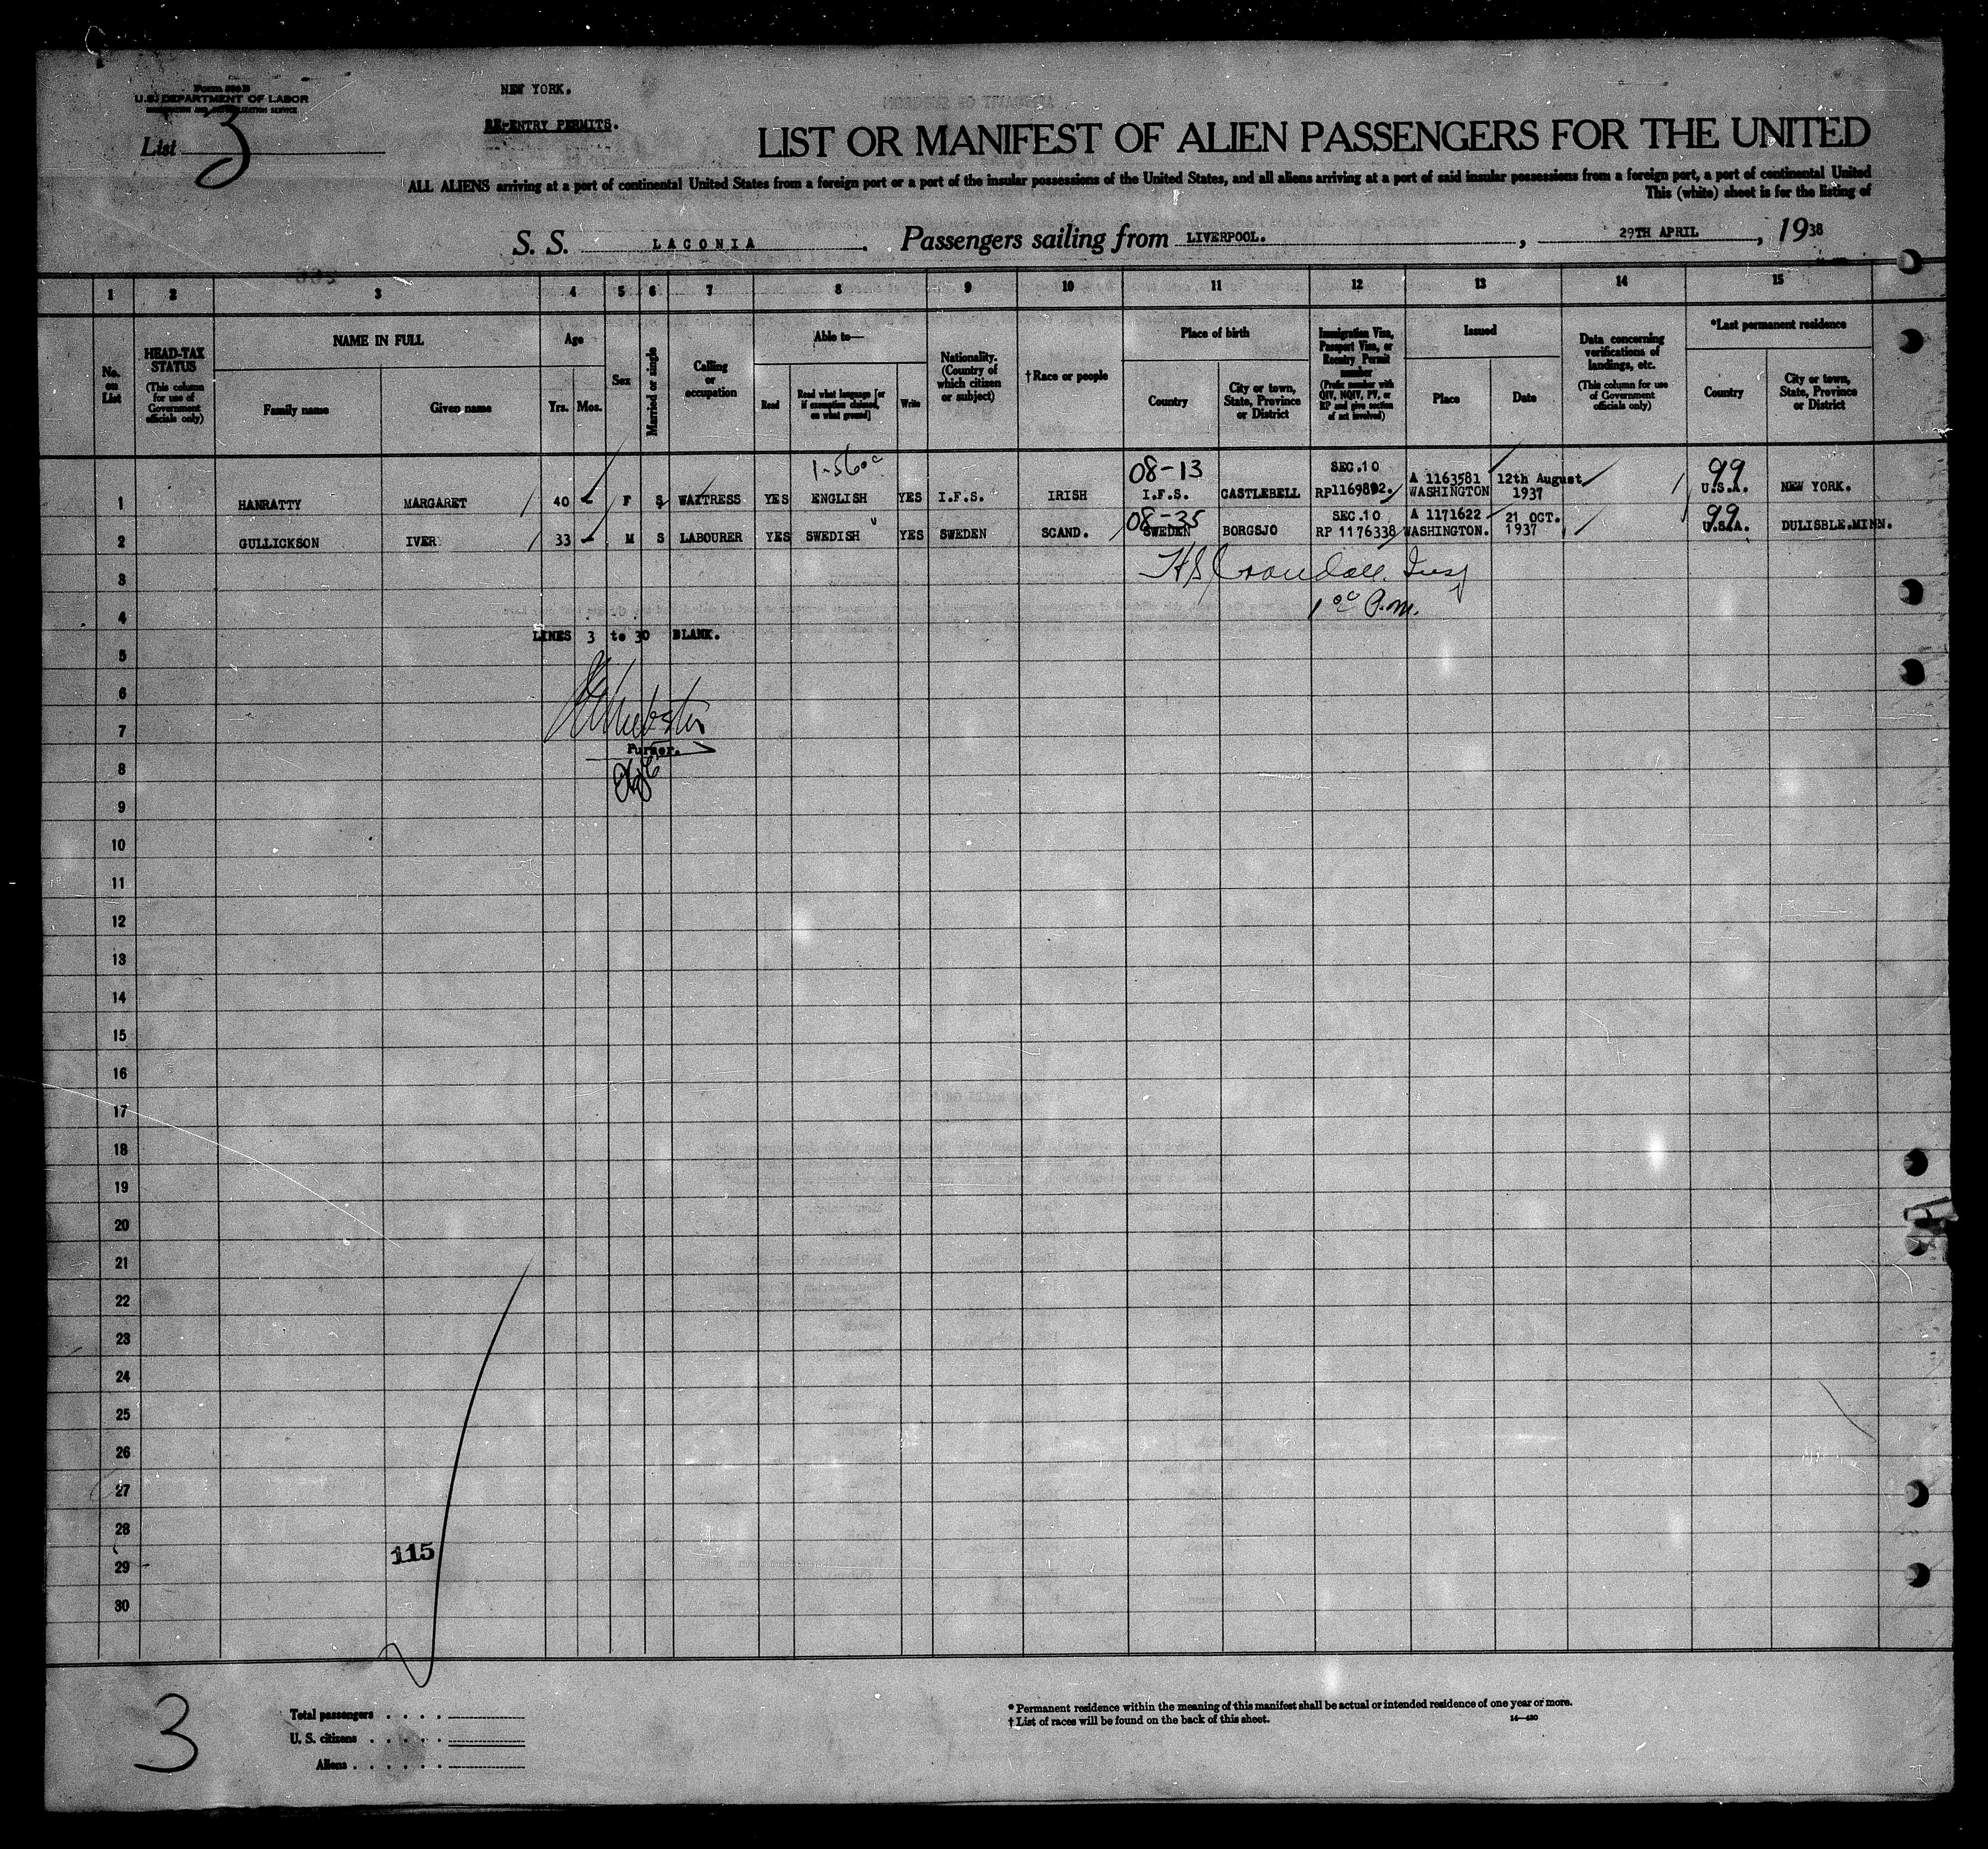 Form 500 B
U.S. DEPARTMENT OF LABOR
IMMIGRATION AND NATURALIZATION SERVICE
List 3
NEW YORK.
RE-ENTRY PERMITS.
LIST OR MANIFEST OF ALIEN PASSENGERS FOR THE UNITED
ALL ALIENS arriving at a port of continental United States from a foreign port or a port of the insular possessions of the United States, and all aliens arriving at a port of said insular possessions from a foreign port, a port of continental United
This (white) sheet is for the listing of
S. S. LACONIA. Passengers sailing from LIVERPOOL. , 29TH APRIL , 1938
1 2 3 4 5 6 7 8 9 10 11 12 13 14 15
No. on List
HEAD-TAX STATUS (This column for use of Government officials only)
NAME IN FULL
Family name Given name
Age
Yrs. Mos.
Sex
Married or single
Calling or occupation
Able to—
Read Read what language [or if exemption claimed, on what ground] Write
Nationality. (Country of which citizen or subject)
†Race or people
Place of birth
Country City or town, State, Province or District
Immigration Visa, Passport Visa, or Reentry Permit number (Prefix number with QIV, NQIV, PV, or RP and give section of act involved)
Issued
Place Date
Data concerning verifications of landings, etc. (This column for use of Government officials only)
*Last permanent residence
Country City or town, State, Province or District
08-13 SEC.10 A 1163581 12th August 99
1 HANRATTY MARGARET 40 F S WAITRESS YES ENGLISH YES I.F.S. IRISH I.F.S. CASTLEBELL RP1169892. WASHINGTON 1937 U.S.A. NEW YORK.
08-35 SEC.10 A 1171622 21 OCT. 99
2 GULLICKSON IVER 33 M S LABOURER YES SWEDISH YES SWEDEN SCAND. SWEDEN BORGSJO RP 1176338 WASHINGTON. 1937 U.S.A. DULISBLE.MINN.
3
H S Crandall. Insp
1 00 P.m.
4
LINES 3 to 30 BLANK.
5
6
7
Purser.
8
9
10
11
12
13
14
15
16
17
18
19
20
21
22
23
24
25
26
27
28
115
29
30
3
Total passengers
U. S. citizens
Aliens
* Permanent residence within the meaning of this manifest shall be actual or intended residence of one year or more.
† List of races will be found on the back of this sheet. 14—430